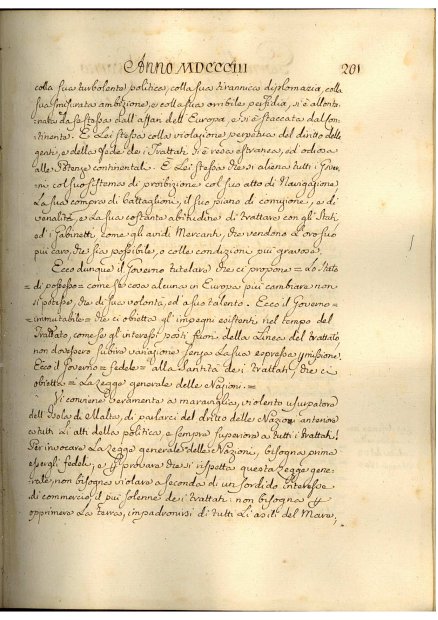 Anno MDCCCIII 201
colla sua turbolenta politica, colla sua tirannica diplomazia, colla
sua smisurata ambizione, e colla sua orribile perfidia, si è allonta
nata da se stessa dall'affari dell'Europa, e si è staccata dal Con
tinente. È Lei stessa colla violazione perpetua del diritto delle
genti, e della fede de i Trattati si è resa estranea, ed odiosa
alle Potenze continentali. È Lei stessa che si aliena tutti i Gover
ni col suo sistema di proibizione col suo atto di Navigazione
La sua compra di battaglioni, il suo piano di corruzione, e di
venalità, e La sua costante abitudine di trattare con gli Stati
ed i Gabinetti come gli avidi Mercanti, che vendono L'oro suo
più caro, che sia possibile, o colle condizioni più gravose.
Ecco dunque il Governo tutelare che ci propone = Lo Stato
= di possesso = come se cosa alcuna in Europa più cambiare non
si potesse, che di sua volontà, ed a suo talento. Ecco il Governo =
= immutabile = che ci obietta gl'impegni esistenti nel tempo del
Trattato, come se gl'interessi posti fuori della Linea del trattato
non dovessero subire variazione senza La sua espressa pmissione.
Ecco il Governo = fedele = alla Santità de i trattati, che ci
obietta = La legge generale delle Nazioni. =
Vi conviene veramente a maraviglia, violento usurpatore
dell'Isola di Malta, di parlarci del dritto delle Nazioni anteriore
a tutti Li atti della politica, e sempre superiore a tutti i trattati!
Per invocare La Legge generale delle Nazioni, bisogna prima
essergli fedele; e p provare che si rispetta questa Legge gene
rale, non bisogna violare a seconda di un sordido interesse
di commercio il più solenne de i trattati: non bisogna p
opprimere La terra, impadronirsi di tutti Li asili del Mare,